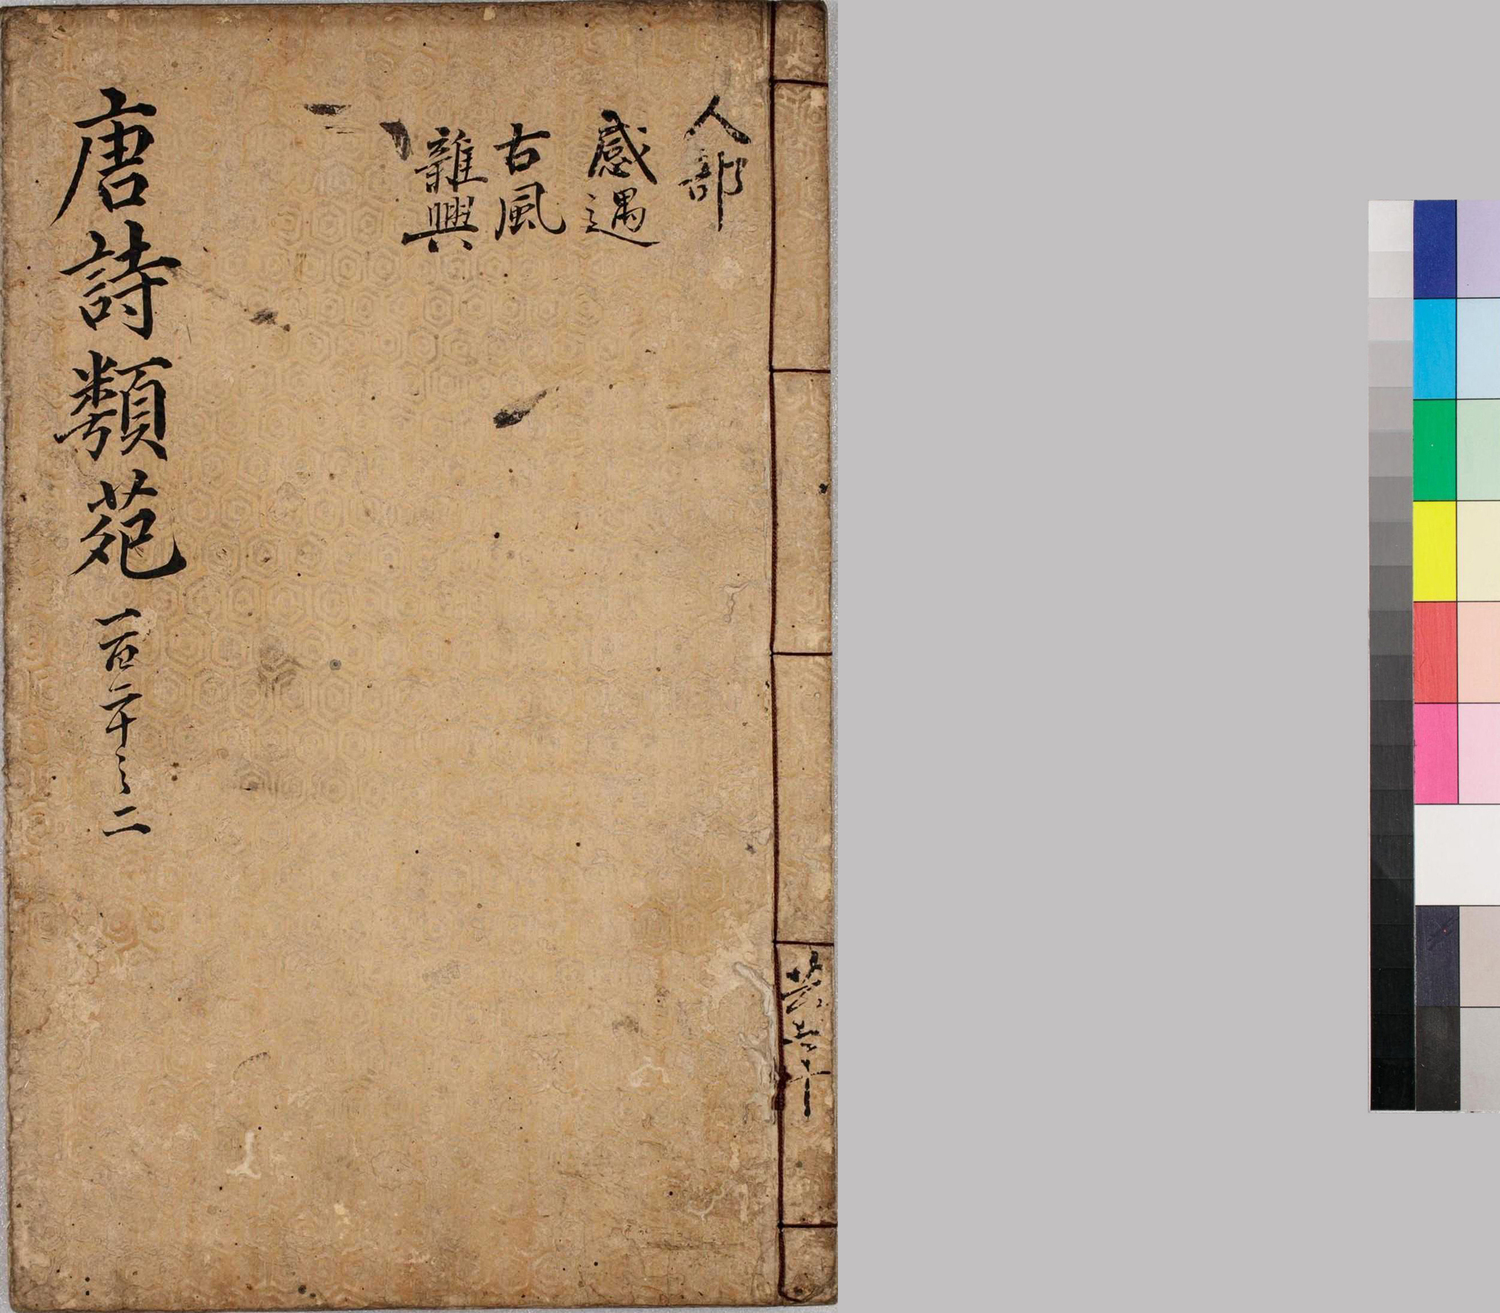 人部
感遇
古風
雜興
唐詩類苑 一百二十之二
共六十